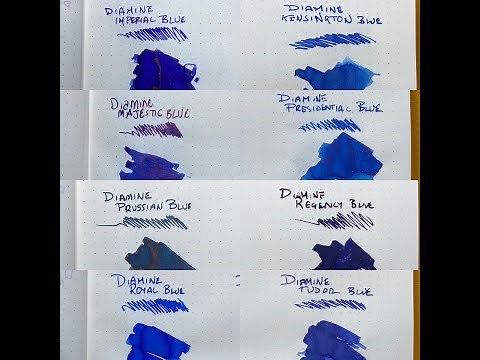 DIAMINE
IMPERIAL BLUE
DIAMINE
KENSINGTON BLUE
DIAMINE
MAJESTIC BLUE
DIAMINE
PRESIDENTIAL BLUE
DIAMINE
PRUSSIAN BLUE
DIAMINE
REGENCY BLUE
DIAMINE
ROYAL BLUE
DIAMINE
TUDOR BLUE